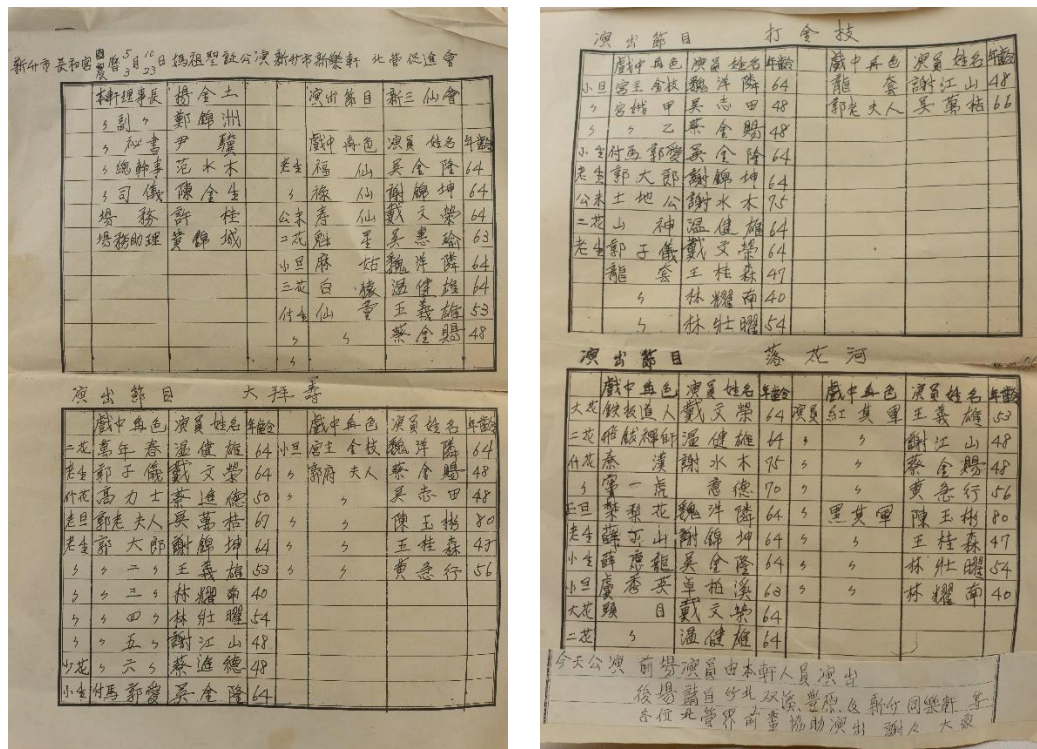 新竹市長和宮國曆5月10日農曆3月23日媽祖聖誕公演新竹市新樂軒 北管促進會
本軒理事長 楊金土 演出節目 新三仙會
〃副〃 鄭錦洲
〃秘書 尹驥 戲中角色 演員姓名 年齡
〃總幹事 范水木 老生 福仙 吳金隆 64
〃司儀 陳金生 〃 祿仙 謝錦坤 64
場務 許桂 公末 寿仙 戴文榮 64
場務助理 黃錦城 二花 魁星 吳惠瑜 63
小旦 麻姑 魏洋隣 64
三花 白猿 温健雄 64
付生 仙童 王義雄 53
〃 〃 蔡金賜 48
〃
演出節目 大拜壽
戲中角色 演員姓名 年齡 戲中角色 演員姓名 年齡
二花 萬年春 温健雄 64 小旦 宮主金枝 魏洋隣 64
老生 郭子儀 戴文榮 64 〃 郭府夫人 蔡金賜 48
付花 高力士 蔡進德 50 〃 〃 吳志田 48
老旦 郭老夫人 吳萬桔 67 〃 〃 陳玉彬 80
老生 郭大郎 謝錦坤 64 〃 〃 王桂森 47
〃 〃二〃 王義雄 53 〃 〃 黃急行 56
〃 〃三〃 林耀南 40
〃 〃四〃 林壯曜 54
〃 〃五〃 謝江山 48
少花 〃六〃 蔡進德 48
小生 付馬郭愛 吳金隆 64
演出節目 打金枝
戲中角色 演員姓名 年齡 戲中角色 演員姓名 年齡
小旦 宮主金枝 魏洋隣 64 龍套 謝江山 48
〃 宮娥甲 吳志田 48 郭老夫人 吳萬桔 66
〃 〃乙 蔡金賜 48
小生 付馬郭愛 吳金隆 64
老生 郭大郎 謝錦坤 64
公末 土地公 謝水木 75
二花 山神 温健雄 64
老生 郭子儀 戴文榮 64
龍套 王桂森 47
〃 林耀南 40
〃 林壯曜 54
演出節目 落花河
戲中角色 演員姓名 年齡 戲中角色 演員姓名 年齡
大花 鉄板道人 戴文榮 64 演員 紅其軍 王義雄 53
二花 飛鈸禪師 温健雄 64 〃 〃 謝江山 48
付花 秦漢 謝水木 75 〃 〃 蔡金賜 48
〃 竇一虎 意德 70 〃 〃 黃急行 56
正旦 樊梨花 魏洋隣 64 〃 黑其軍 陳玉彬 80
老生 薛丁山 謝錦坤 64 〃 〃 王桂森 47
小生 薛應龍 吳金隆 64 〃 〃 林壯曜 54
小旦 虞秀英 卓柏溪 63 〃 〃 林耀南 40
大花 頭目 戴文榮 64
二花 〃 温健雄 64
今天公演 前場演員由本軒人員演出
後場請自竹北双溪豐原及新竹同樂軒等
各位北管界前輩協助演出 謝々大家